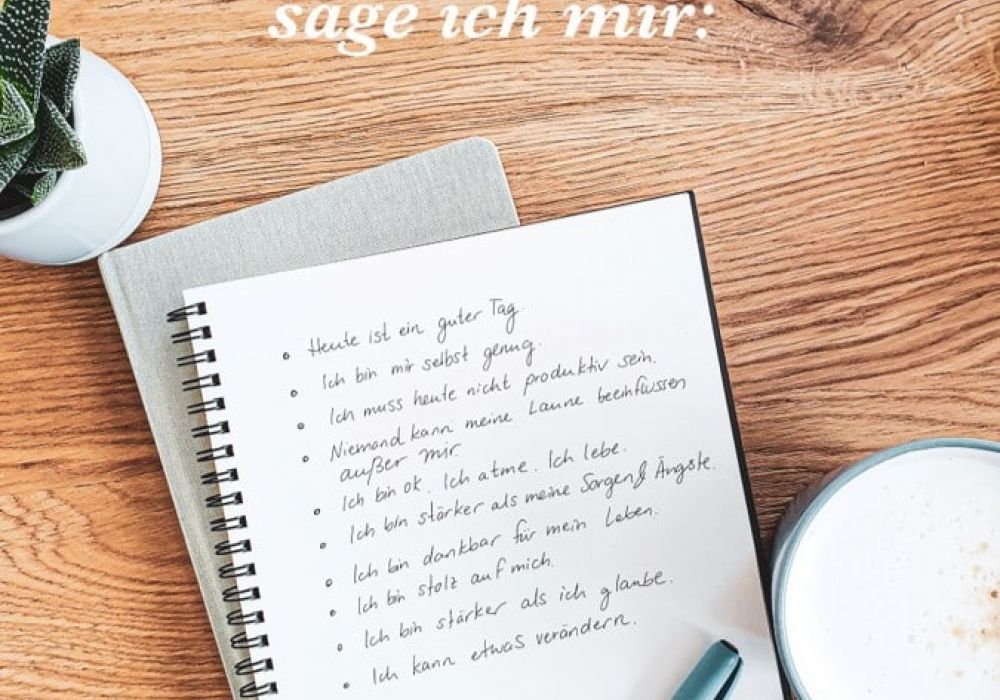 sage ich mir:
Heute ist ein guter Tag.
Ich bin mir selbst genug.
Ich muss heute nicht produktiv sein.
Niemand kann meine Laune beeinflussen
außer mir.
Ich bin ok. Ich atme. Ich lebe.
Ich bin stärker als meine Sorgen & Ängste.
Ich bin dankbar für mein Leben.
Ich bin stolz auf mich.
Ich bin stärker als ich glaube.
Ich kann etwas verändern.